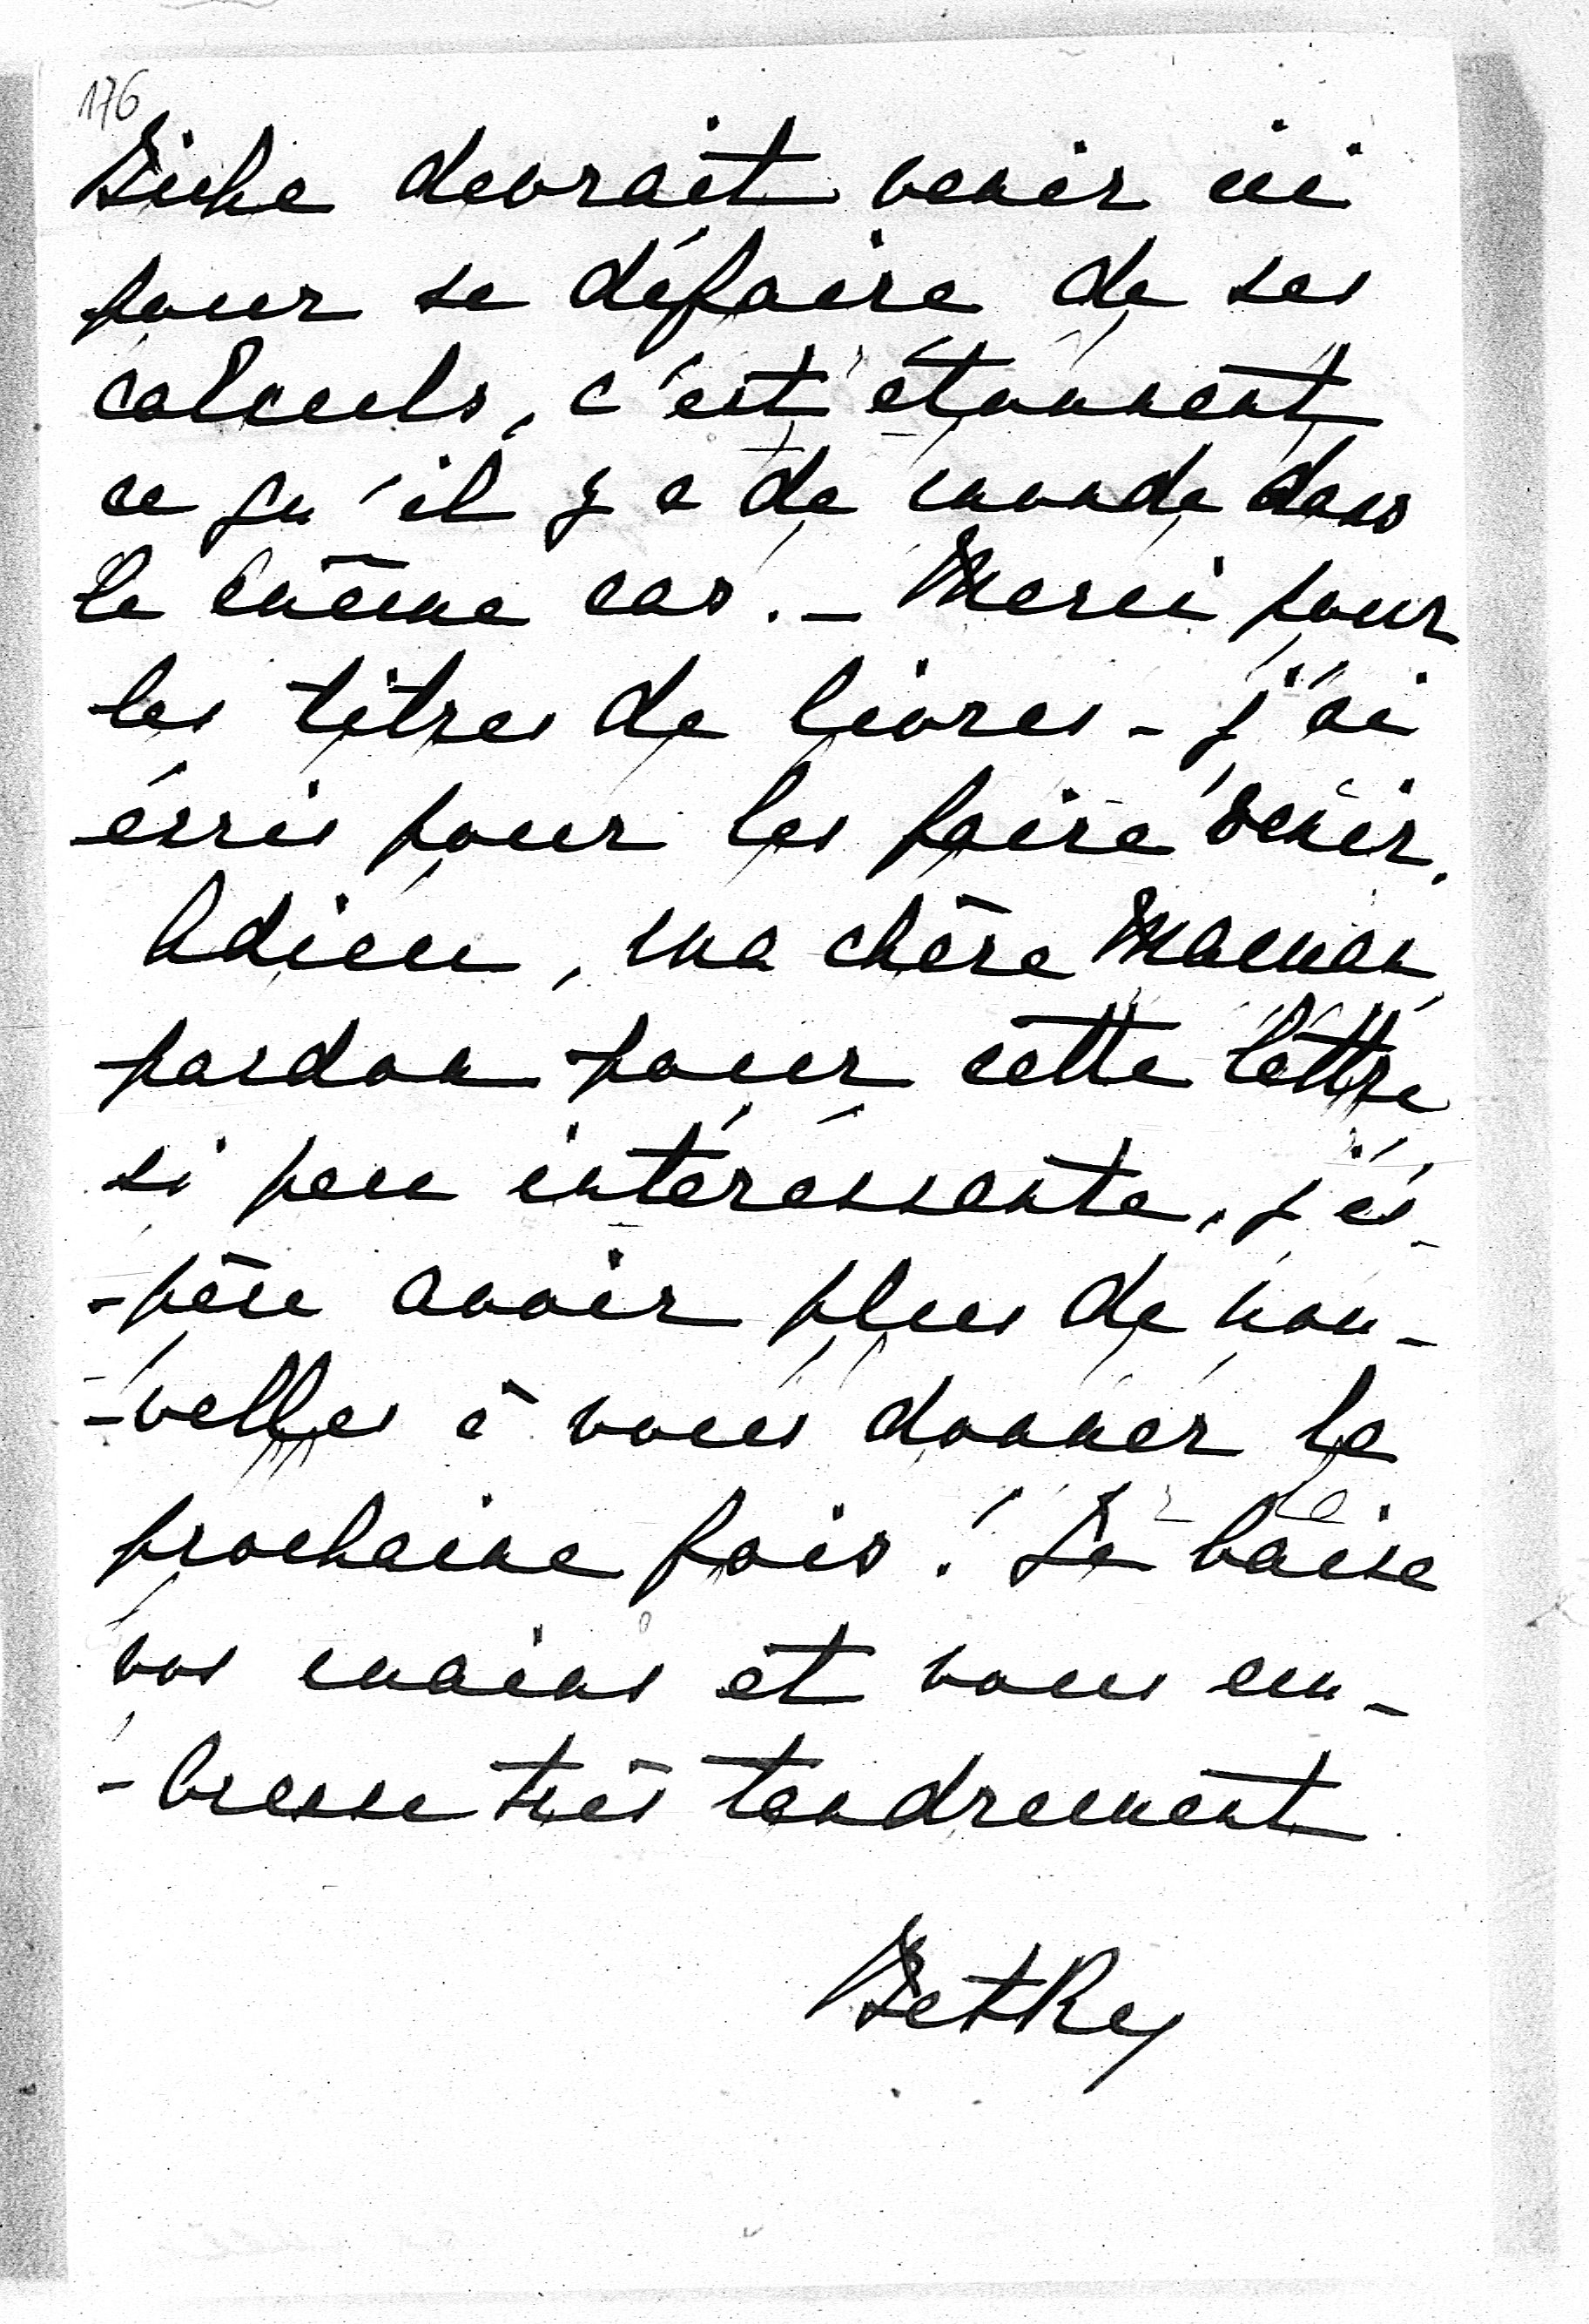 176
Siche devrait venir ici
pour se défaire de ses
calculs, c'est étonnant
ce qu'il y a de monde dans
le même cas. - Merci pour
les titres de livres - j'ai
écris pour les faire venir.
Adieu, ma chère Maman,
pardon pour cette lettre
si peu intéressante, j'es-
-père avoir plus de nou-
-velles à vous donner la
prochaine fois! Je baise
vos mains et vous em-
-brasse très tendrement
Betky